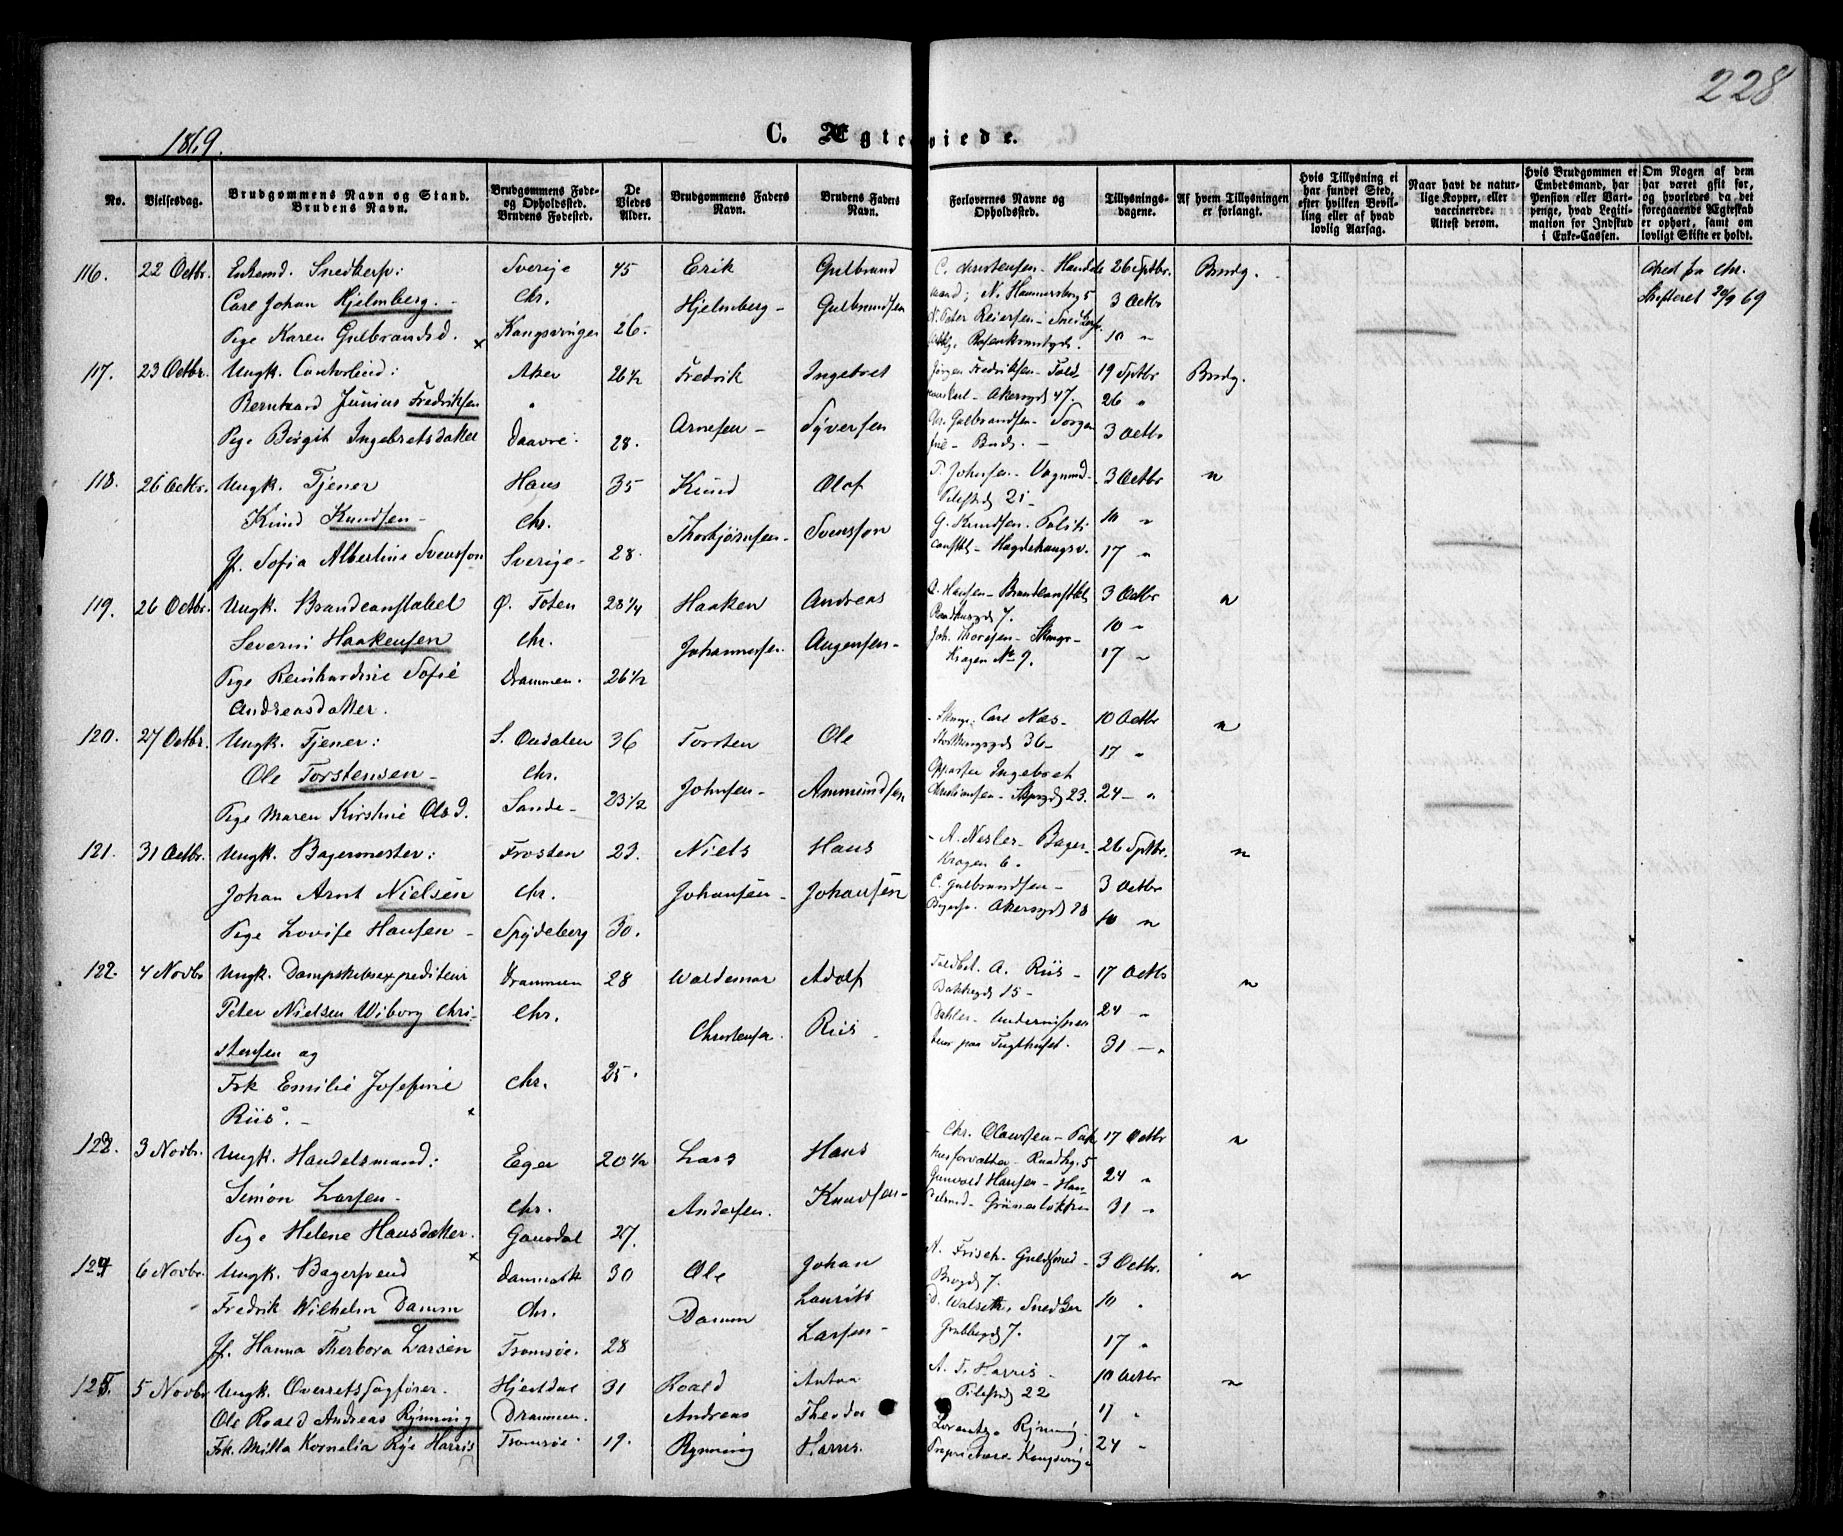 228
1869.
C. Ægteviede.
No.
Vielsesdag.
Brudgommens Navn og Stand.
Brudens Navn.
Brudgommens Føde-
og Opholdssted.
Brudens Fødested.
De
Viedes
Alder.
Brudgommens Faders
Navn.
Brudens Faders
Navn.
Forlovernes Navne og
Opholdssted.
Tillysnings-
dagene.
Af hvem Tillysningen
er forlangt.
Hvis Tillysning ei
har fundet Sted,
efter hvilken Bevil-
ling eller af hvad
lovlig Aarsag.
Naar havt de natur-
lige Kopper, eller
vaccinerede.
Attest derom.
Hvis Brudgommen er
Embedsmand, har
Pension eller Vart-
penge, hvad Legiti-
mation for Indskud
i Enke-Cassen.
Om Nogen af dem
har været gift før,
og hvorledes da det
foregaaende Ægteskab
er ophørt, samt om
lovligt Skifte er holdt.
116. 22 Octbr. Enkemd. Snedkersv: Sverige 45 Erik Gulbrand C. Christensen - Handels 26 Sptbr. Brudg.
Carl Johan Hjelmberg. - Chr. Hjelmberg - Gulbrandsen mand; N. Hammersborg 5 3 Octb
Skifteret 20/9 69
Pige Karen Gulbrandsd. Kongsvinger 26. N. Peter Reiersen - 10 "
117. 23 Octbr. Ungk. Contorbud: Aker 26 1/2 Fredrik Ingebret Jørgen Fredriksen - Told 19 Sptbr Brudg.
Berntaard Junius Fredriksen " Arnesen - Syversen Akersgd 47. 26 "
Pige Børgit Ingebretsdatter Daavre. 28. Chr. Gulbrandsen - Sorgen 3 Octb
frie - Brudg. -
118. 26 Octbr. Ungk. Tjener Haus 35 Knud Olof T. Johnsen - Vognmd - 3 Octbr "
Knud Knudsen - Chr. Thorbjørnsen - Svensson Pilestd 21 10 "
G. Knudsen. Politi
Jf. Sofia Albertine Svensson Sverige - 28. constbl - Hægdehaugsv. 17 "
119. 26 Octbr. Ungk. Brandconstabel Ø. Toten 28 1/4 Haaken Andreas O. Hansen - Brandconstbl 3 Octbr "
Raadhusgd 7.
Severin Haakensen Chr. Johannesen. Augensen - Joh. Thoresen - 10 "
Kragen No 9. 17 "
Pige Reinhardine Sofie Drammen. 26 1/2
Andreasdatter.
120. 27 Octbr. Ungk. Tjener: S. Ondalen 36 Torsten Ole Carl Næs - 10 Octbr "
Storthingsgd 36 - 17 "
Ole Torstensen - Chr. Johnsen - Ammundsen Ingebret
Pige Maren Kirstine Olsd. Sande - 23 1/2 Christiansen - 23. 24 - "
121. 31 Octbr. Ungk. Bagermester: Frosten 23. Niels Hans - A. Nesler - Bager - 26 Sptbr. "
Kragen 6.
Johan Arnt Nielsen Chr. Johansen - Johansen C. Gulbrandsen - 3 Octbr
Akersgd 28 10 "
Pige Lovise Hansen - Spydeberg 30.
122. 4 Novbr Ungk. Dampskibsexpediteur Drammen 28 Waldemar Adolf Toldbet. A. Riis - 17 Octb "
Bakkegd 15 -
Peter Nielsen Wiborg Chri- Chr. Christensen. Riis. Dahler - 24 "
paa Tugthuset. 31 - "
stensen og
Frk Emilie Josefine Chr. 25.
Riis. -
123. 3 Novbr. Ungk. Handelsmand: Eger 20 1/2 Lars Hans - Chr. Olaussen - Pak 17 Octbr "
husforvalter - Raadhg. 5
Simon Larsen - Chr. Andersen. Knudsen - Grunvold Hansen - Han- 24 "
delsmd - Grünerløkken 31 "
Pige Helene Hansdatter. Gausdal 27.
124 6 Novbr. Ungk. Bagersvend Danmark 30 Ole Johan A. Frisch - Guldsmed - 3 Octbr. "
Brogd 7.
Fredrik Wilhelm Damm Chr. Damm Laurits O. Walseth, Snedker 10 "
Grubbegd 7.
Jf. Hanna Therbora Larsen Tromsøe. 28 Larsen - 17 "
125. 5 Novbr Ungk. Overretssagfører. Hjertdal 31 Roald Anton A. T. Harris - 10 Octbr "
Pilestrd 22
Ole Roald Andreas Rynning Drammen. Andreas Theodor 17 "
Lorentz Rynning
Frk. Mitta Kornelia Rye Harris Tromsøe. 19. Rynning Harris. Proprietær Kongsving. 24 "